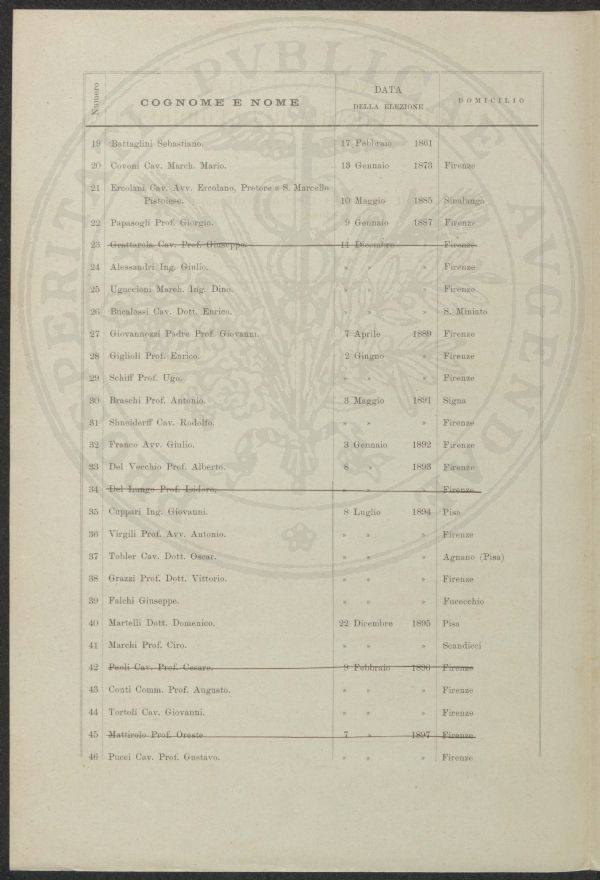 Numero COGNOME E NOME DATA DELLA ELEZIONE DOMICILIO
19 Battaglini Sebastiano. 17 Febbraio 1861
20 Covoni Cav. March. Mario. 13 Gennaio 1873 Firenze
21 Ercolani Cav. Avv. Ercolano, Pretore a S. Marcello
Pistoiese. 10 Maggio 1885 Sinalunga
22 Papasogli Prof. Giorgio. 9 Gennaio 1887 Firenze
23 Grattarola Cav. Prof. Giuseppe. 11 Dicembre » Firenze
24 Alessandri Ing. Giulio. » » » Firenze
25 Uguccioni March. Ing. Dino. » » » Firenze
26 Bucalossi Cav. Dott. Enrico. » » » S. Miniato
27 Giovannozzi Padre Prof. Giovanni. 7 Aprile 1889 Firenze
28 Giglioli Prof. Enrico. 2 Giugno » Firenze
29 Schiff Prof. Ugo. » » » Firenze
30 Braschi Prof. Antonio. 3 Maggio 1891 Signa
31 Shneiderff Cav. Rodolfo. » » » Firenze
32 Franco Avv. Giulio. 3 Gennaio 1892 Firenze
33 Del Vecchio Prof. Alberto. 8 » 1893 Firenze
34 Del Lungo Prof. Isidoro. » » » Firenze
35 Cuppari Ing. Giovanni. 8 Luglio 1894 Pisa
36 Virgili Prof. Avv. Antonio. » » » Firenze
37 Tobler Cav. Dott. Oscar. » » » Agnano (Pisa)
38 Grazzi Prof. Dott. Vittorio. » » » Firenze
39 Falchi Giuseppe. » » » Fucecchio
40 Martelli Dott. Domenico. 22 Dicembre 1895 Pisa
41 Marchi Prof. Ciro. » » » Scandicci
42 Paoli Cav. Prof. Cesare. 9 Febbraio 1896 Firenze
43 Conti Comm. Prof. Augusto. » » » Firenze
44 Tortoli Cav. Giovanni. » » » Firenze
45 Mattirolo Prof. Oreste 7 » 1897 Firenze
46 Pucci Cav. Prof. Gustavo. » » » Firenze